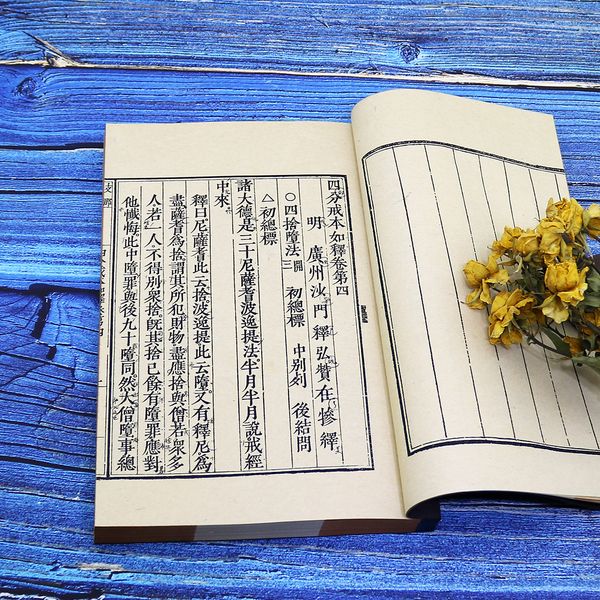 四分戒本如釋卷第四
明 廣州沙門 釋弘贊在犙繹
○四捨墮法 開三 初總標 中別列 後結問
△初總標
諸大德是三十尼薩耆波逸提法半月半月說戒經
中來
釋曰尼薩耆此云捨波逸提此云墮又有釋尼為
盡薩耆為捨謂其所犯財物盡應捨與僧若眾多
人若一人不得別眾捨既其捨已餘有墮罪應對
他懺悔此中墮罪與後九十墮同然大僧墮事總